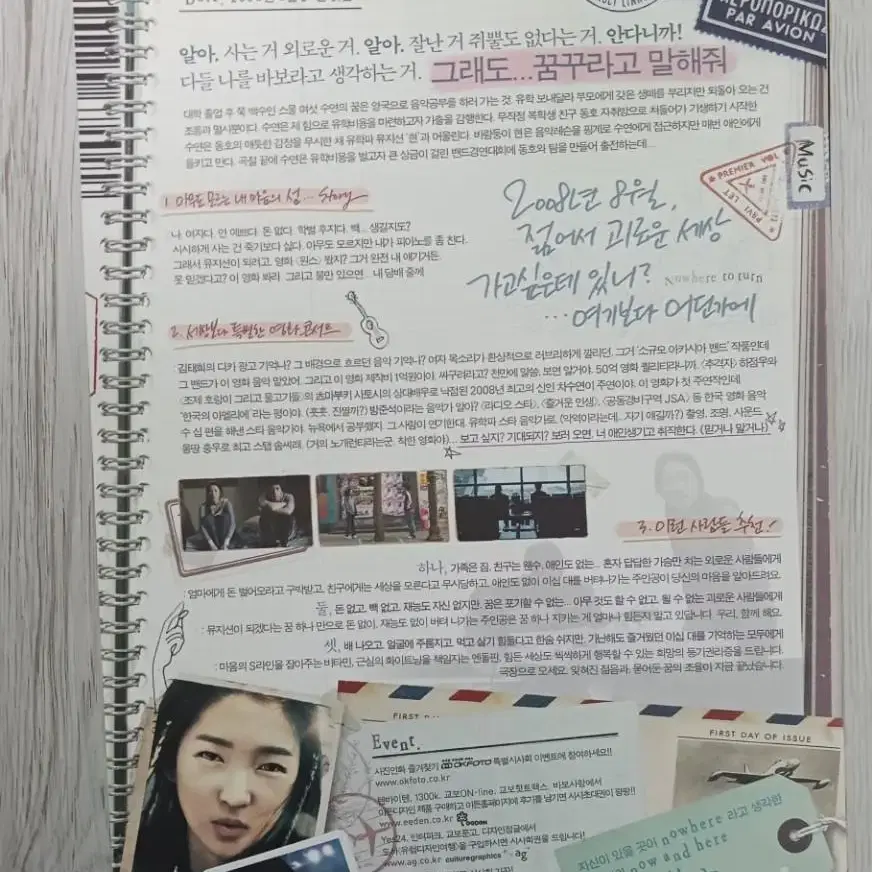 알아, 사는 거 외로운 거. 알아, 잘난 거 쥐뿔도 없다는 거. 안다니까!
다들 나를 바보라고 생각하는 거. 그래도...꿈꾸라고 말해줘
ΑΕΡΟΠΟΡΙΚΩΣ
PAR AVION
대학 졸업 후 쭉 백수인 스물 여섯 수연의 꿈은 영국으로 음악공부를 하러 가는 것. 유학 보내달라 부모에게 갖은 생떼를 부리지만 되돌아 오는 건
조롱과 멸시뿐이다. 수연은 제 힘으로 유학비용을 마련하고자 가출을 감행한다. 무작정 복학생 친구 동호 자취방으로 쳐들어가 기생하기 시작한
수연은 동호의 애틋한 감정을 무시한 채 유학파 뮤지션 '현'과 어울린다. 바람둥이 현은 음악레슨을 핑계로 수연에게 접근하지만 매번 애인에게
들키고 만다. 곡절 끝에 수연은 유학비용을 벌고자 큰 상금이 걸린 밴드경연대회에 동호와 팀을 만들어 출전하는데...
Music
PREMIER VOL
1. 아무도 모르는 내 마음의 섬... Story
나. 여자다. 안 예쁘다. 돈 없다. 학벌 후지다. 백... 생길지도?
시시하게 사는 건 죽기보다 싫다. 아무도 모르지만 내가 피아노를 좀 친다.
그래서 뮤지션이 되려고. 영화 <원스> 봤지? 그거 완전 내 얘기거든.
못 믿겠다고? 이 영화 봐라. 그리고 불만 있으면... 내 담배 줄께
2008년 8월,
젊어서 괴로운 세상
가고싶은데 있니? Nowhere to turn
...여기보다 어딘가에
2. 세상보다 특별한 영화콘서트
: 김태희의 디카 광고 기억나? 그 배경으로 흐르던 음악 기억나? 여자 목소리가 환상적으로 러브리하게 깔리던. 그거 '소규모 아카시아 밴드' 작품인데
그 밴드가 이 영화 음악 맡았어. 그리고 이 영화 제작비 1억원이야. 싸구려라고? 천만에 말씀, 보면 알거야. 50억 영화 퀄리티라니까. <추격자> 하정우와
<조제 호랑이 그리고 물고기들>의 츠마부키 사토시의 상대배우로 낙점된 2008년 최고의 신인 차수연이 주연이야. 이 영화가 첫 주연작인데
'한국의 아멜리에'라는 평이야. (훗훗, 진짤까?) 방준석이라는 음악가 알아? <라디오 스타>, <즐거운 인생>, <공동경비구역 JSA> 등 한국 영화 음악
수 십 편을 해낸 스타 음악가야. 뉴욕에서 공부했지. 그 사람이 연기한대. 유학파 스타 음악가로. (악역이라는데...자기 얘길까?) 촬영, 조명, 사운드
몽땅 충무로 최고 스탭 솜씨래. (거의 노개런티라는군. 착한 영화야)... 보고 싶지? 기대되지? 보러 오면, 너 애인생기고 취직한다. (믿거나 말거나)
3. 이런 사람들 추천!
하나, 가족은 짐, 친구는 웬수, 애인도 없는... 혼자 답답한 가슴만 치는 외로운 사람들에게
: 엄마에게 돈 떨어오라고 구박받고, 친구에게는 세상을 모른다고 무시당하고, 애인도 없이 이십 대를 버텨나가는 주인공이 당신의 마음을 알아드려요.
둘, 돈 없고, 백 없고, 재능도 자신 없지만, 꿈은 포기할 수 없는... 아무 것도 할 수 없고, 될 수 없는 괴로운 사람들에게
: 뮤지션이 되겠다는 꿈 하나 만으로 돈 없이, 재능도 없이 버텨 나가는 주인공은 꿈 하나 지키는 게 얼마나 힘든지 알고 있답니다. 우리, 함께 해요.
셋, 배 나오고, 얼굴에 주름지고, 먹고 살기 힘들다고 한숨 쉬지만, 가난해도 즐거웠던 이십 대를 기억하는 모두에게
: 마음의 S라인을 잡아주는 비타민, 근심의 화이트닝을 책임지는 엔돌핀, 힘든 세상도 씩씩하게 행복할 수 있는 희망의 등기권리증을 드립니다.
극장으로 오세요. 잊혀진 젊음과, 묻어둔 꿈의 조율이 지금 끝났습니다.
FIRST D
FIRST DAY OF ISSUE
Event.
사진인화 즐겨찾기 OKFOTO 특별시사회 이벤트에 참여하세요!!
www.okfoto.co.kr
텐바이텐, 1300k, 교보ON-line, 교보핫트랙스, 바보사랑에서
이든디자인 제품 구매하고 이든홈페이지에 후기를 남기면 시사초대권이 팡팡!!
www.eeden.co.kr
Yes24, 인터파크, 교보문고, 디자인정글에서
도서(유럽디자인여행)을 구입하시면 시사회권을 드립니다!
www.ag.co.kr culturegraphics ag
자신이 있을 곳이 nowhere 라고 생각한
now and here